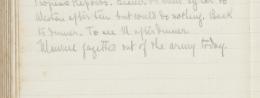 Reports.
after tea but could do nothing. Back
to dinner. To see M after dinner
Maurice gazetted out of the army today.